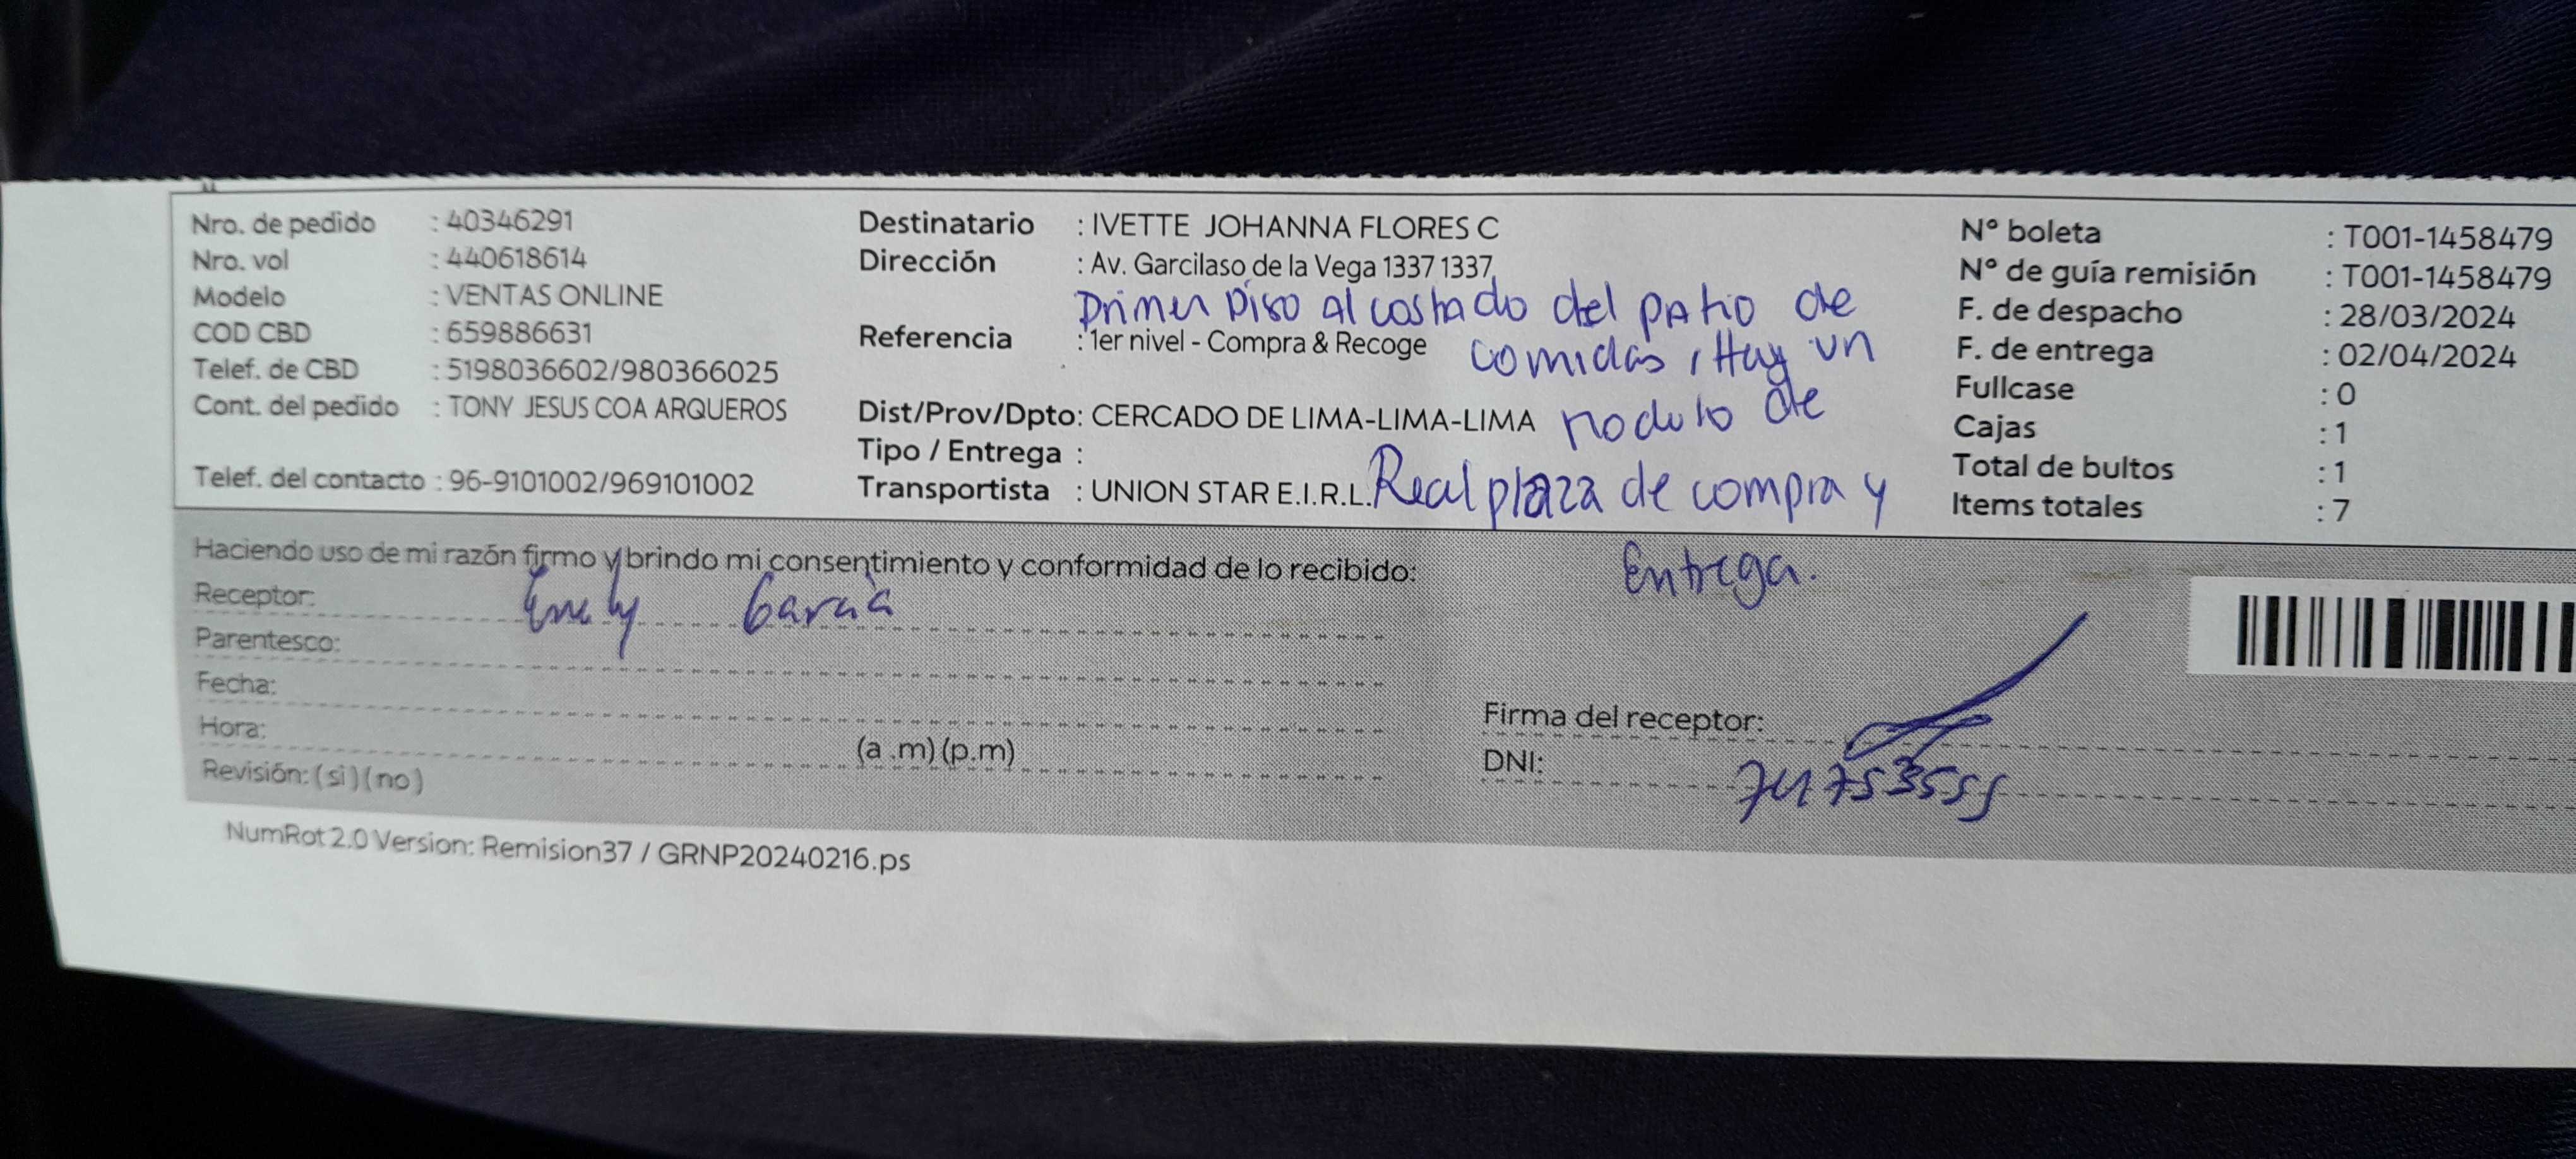 Nro. de pedido : 40346291
Nro. vol : 440618614
Modelo : VENTAS ONLINE
COD CBD : 659886631
Telef. de CBD : 5198036602/980366025
Cont. del pedido : TONY JESUS COA ARQUEROS
Telef. del contacto : 96-9101002/969101002
Destinatario : IVETTE JOHANNA FLORES C
Dirección : Av. Garcilaso de la Vega 1337 1337
Primer Piso al costado del patio de
Referencia : 1er nivel - Compra & Recoge
comidas, Hay un
Dist/Prov/Dpto: CERCADO DE LIMA-LIMA-LIMA
modulo de
Tipo / Entrega :
Transportista : UNION STAR E.I.R.L.
Real plaza de compra y
Entrega.
N° boleta : T001-1458479
N° de guía remisión : T001-1458479
F. de despacho : 28/03/2024
F. de entrega : 02/04/2024
Fullcase : 0
Cajas : 1
Total de bultos : 1
Items totales : 7
Haciendo uso de mi razón firmo y brindo mi consentimiento y conformidad de lo recibido:
Receptor: Garcia
Parentesco:
Fecha:
Hora: (a .m) (p.m)
Revisión: (si) (no)
Firma del receptor:
DNI:
NumRot 2.0 Version: Remision37 / GRNP20240216.ps